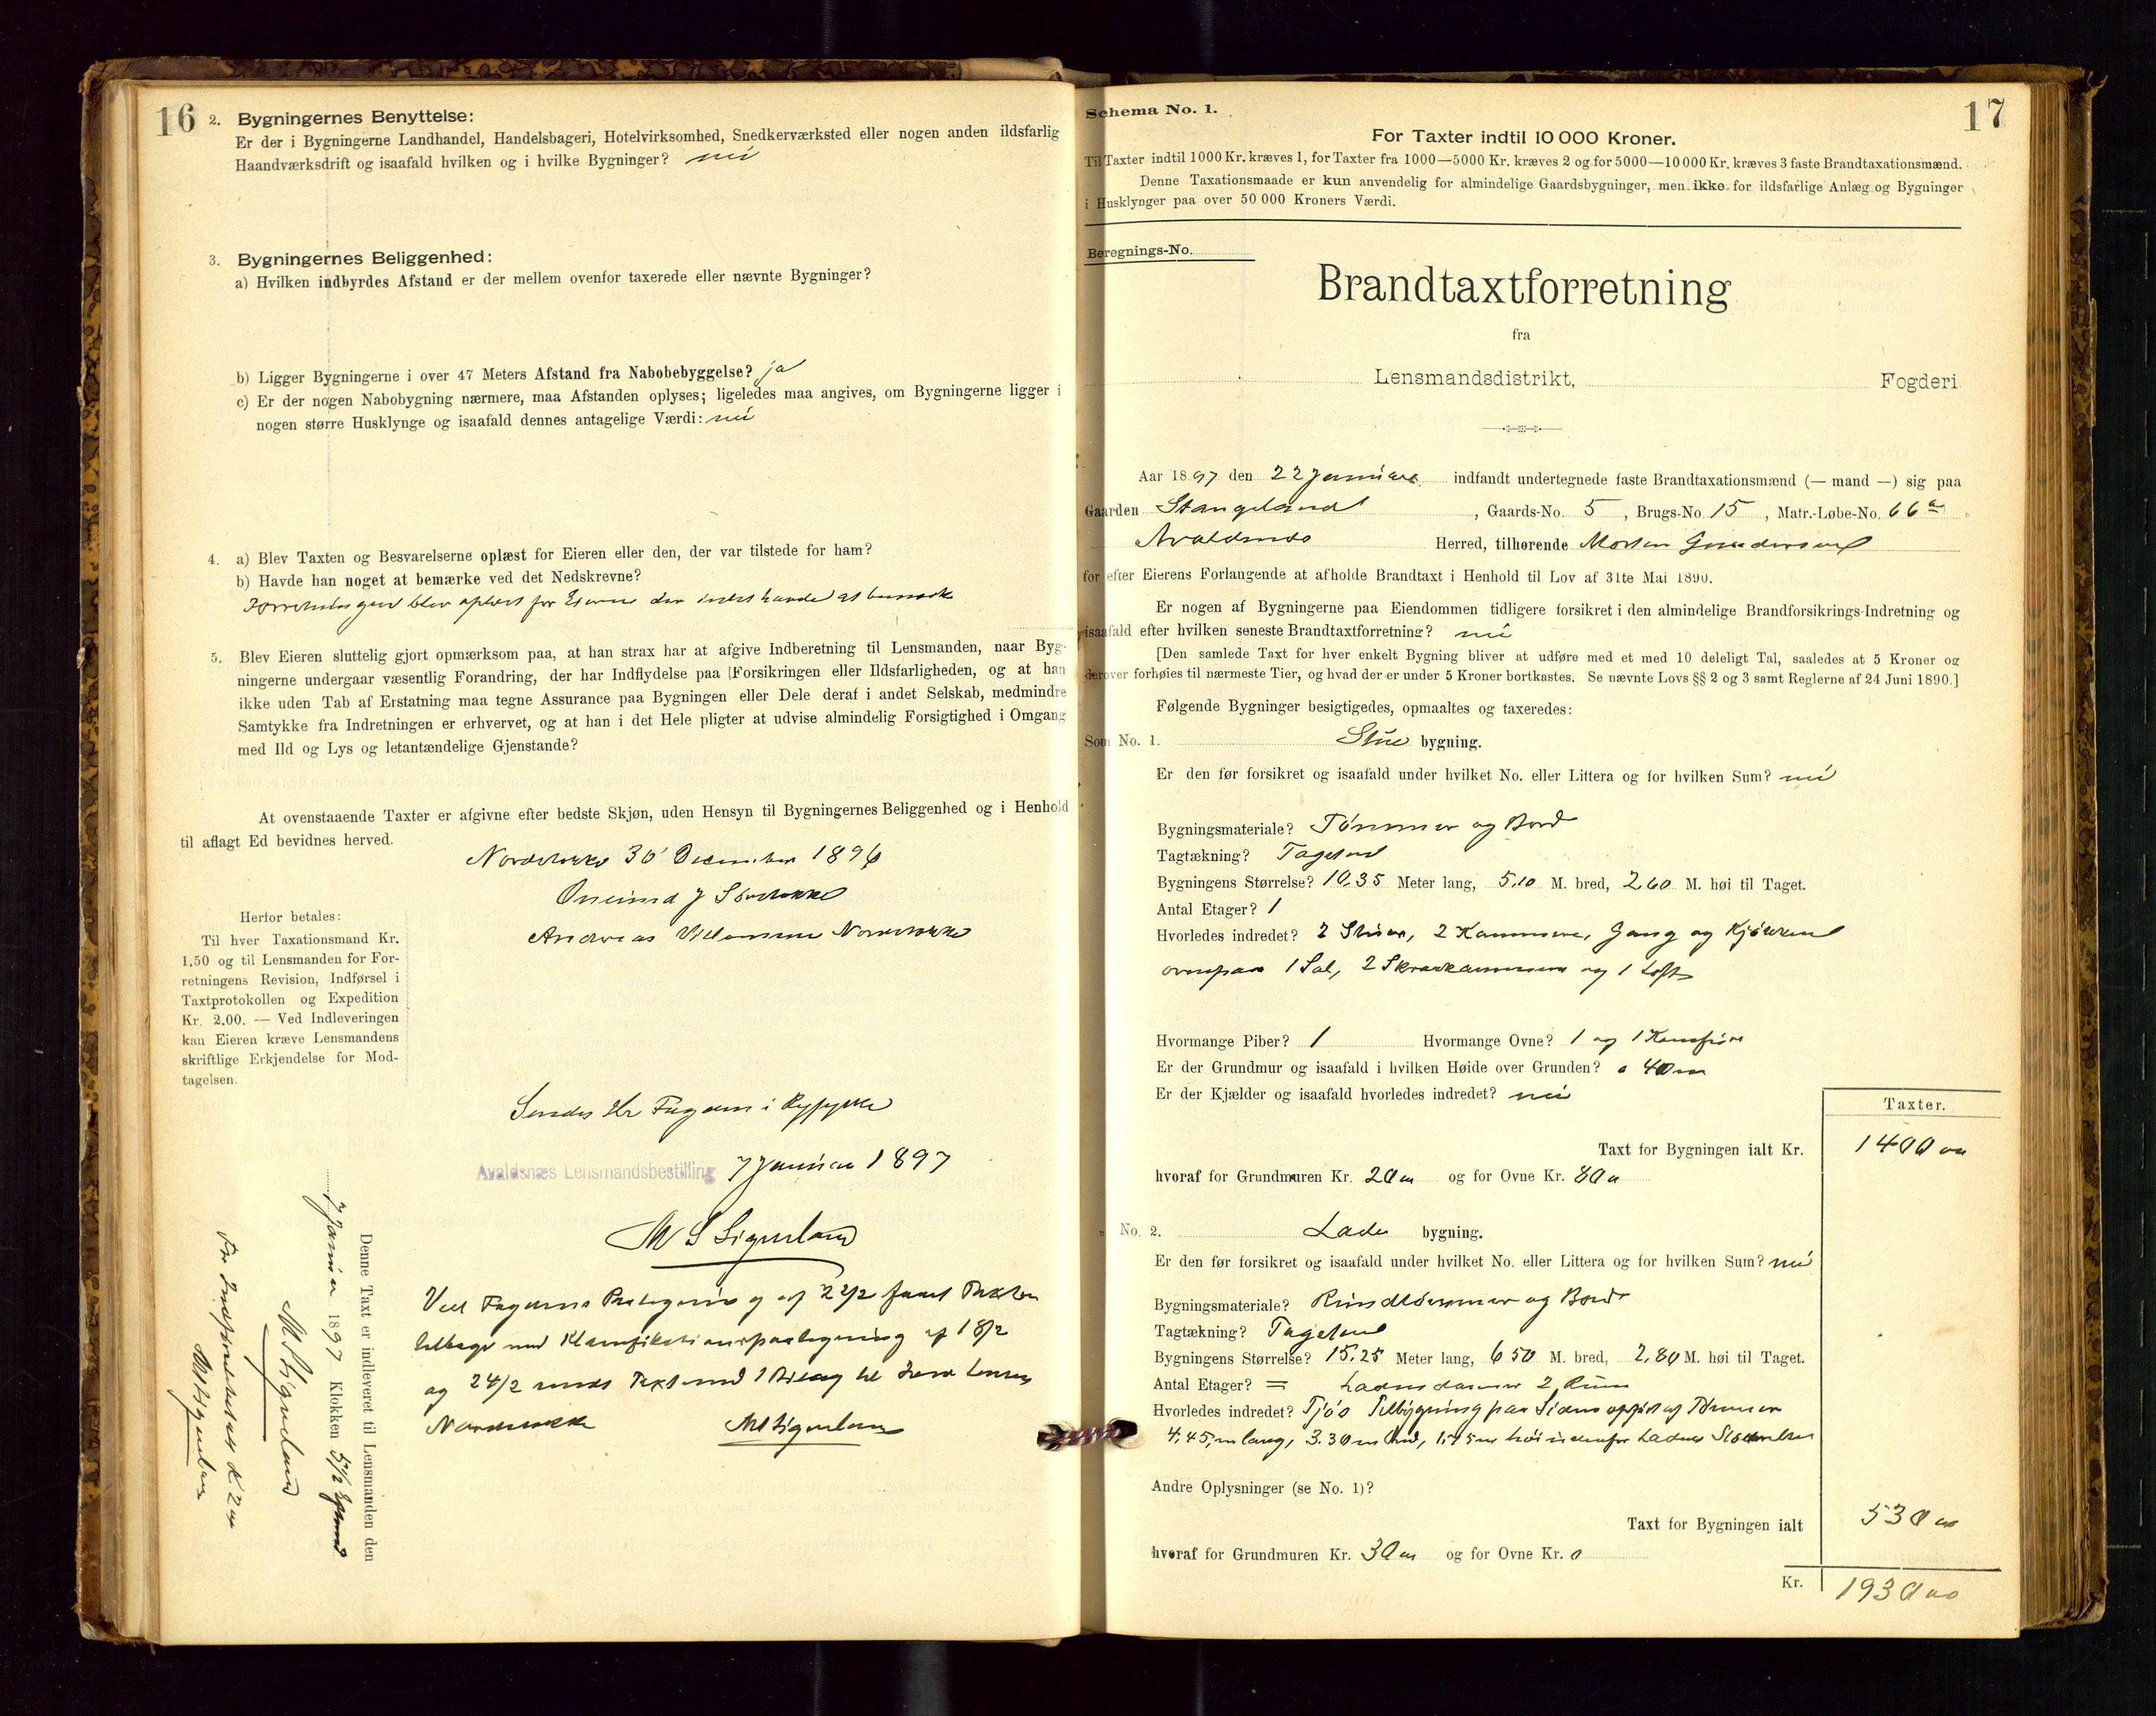 16
2. Bygningernes Benyttelse:
Er der i Bygningerne Landhandel, Handelsbageri, Hotelvirksomhed, Snedkerværksted eller nogen anden ildsfarlig
Haandværksdrift og isaafald hvilken og i hvilke Bygninger? nei
3. Bygningernes Beliggenhed:
a) Hvilken indbyrdes Afstand er der mellem ovenfor taxerede eller nævnte Bygninger?
b) Ligger Bygningerne i over 47 Meters Afstand fra Nabobebyggelse? ja
c) Er der nogen Nabobygning nærmere, maa Afstanden oplyses; ligeledes maa angives, om Bygningerne ligger i
nogen større Husklynge og isaafald dennes antagelige Værdi: nei
4. a) Blev Taxten og Besvarelserne oplæst for Eieren eller den, der var tilstede for ham?
b) Havde han noget at bemærke ved det Nedskrevne?
Forretningen blev oplæst for Eieren der intet havde at bemærke
5. Blev Eieren sluttelig gjort opmærksom paa, at han strax har at afgive Indberetning til Lensmanden, naar Byg-
ningerne undergaar væsentlig Forandring, der har Indflydelse paa [Forsikringen eller Ildsfarligheden, og at han
ikke uden Tab af Erstatning maa tegne Assurance paa Bygningen eller Dele deraf i andet Selskab, medmindre
Samtykke fra Indretningen er erhvervet, og at han i det Hele pligter at udvise almindelig Forsigtighed i Omgang
med Ild og Lys og letantændelige Gjenstande?
At ovenstaaende Taxter er afgivne efter bedste Skjøn, uden Hensyn til Bygningernes Beliggenhed og i Henhold
til aflagt Ed bevidnes herved.
30 December 1896
Andreas
Herfor betales:
Til hver Taxationsmand Kr.
1.50 og til Lensmanden for For-
retningens Revision, Indførsel i
Taxtprotokollen og Expedition
Kr. 2.00. — Ved Indleveringen
kan Eieren kræve Lensmandens
skriftlige Erkjendelse for Mod-
tagelsen.
Sendes Hr Fogden i Ryfylke
Avaldsnæs Lensmandsbestilling 7 Januar 1897
M S Sigvaland
Ved Fogdens Paategning af 22/2 sendt Taxten
tilbage med Klassifikationspaategning af 18/2
og 24/2 sendt Taxt med 1 Bilag til
Denne Taxt er indleveret til Lensmanden den
7 Januar 1897 Klokken 5 1/2
17
Schema No. 1.
For Taxter indtil 10 000 Kroner.
Til Taxter indtil 1000 Kr. kræves 1, for Taxter fra 1000—5000 Kr. kræves 2 og for 5000—10 000 Kr. kræves 3 faste Brandtaxationsmænd.
Denne Taxationsmaade er kun anvendelig for almindelige Gaardsbygninger, men ikke for ildsfarlige Anlæg og Bygninger
i Husklynger paa over 50 000 Kroners Værdi.
Beregnings-No.
Brandtaxtforretning
fra
Lensmandsdistrikt, Fogderi
Aar 1897 den 22 Januar indfandt undertegnede faste Brandtaxationsmænd (— mand —) sig paa
Gaarden Stangeland, Gaards-No. 5, Brugs-No. 15, Matr.-Løbe-No. 66a
Avaldsnæs Herred, tilhørende Morten Gundersen
for efter Eierens Forlangende at afholde Brandtaxt i Henhold til Lov af 31te Mai 1890.
Er nogen af Bygningerne paa Eiendommen tidligere forsikret i den almindelige Brandforsikrings-Indretning og
isaafald efter hvilken seneste Brandtaxtforretning? nei
[Den samlede Taxt for hver enkelt Bygning bliver at udføre med et med 10 deleligt Tal, saaledes at 5 Kroner og
derover forhøies til nærmeste Tier, og hvad der er under 5 Kroner bortkastes. Se nævnte Lovs §§ 2 og 3 samt Reglerne af 24 Juni 1890.]
Følgende Bygninger besigtigedes, opmaaltes og taxeredes:
Som No. 1. Stue bygning.
Er den før forsikret og isaafald under hvilket No. eller Littera og for hvilken Sum? nei
Bygningsmateriale? Tømmer og Bord
Tagtækning? Tagsten
Bygningens Størrelse? 10.35 Meter lang, 5.10 M. bred, 2.60 M. høi til Taget.
Antal Etager? 1
Hvorledes indredet? 2 Stuer, 2 Kammere, Gang og Kjøkken
ovenpaa 1 Sal, 2 Skraakammere og 1 Loft
Hvormange Piber? 1 Hvormange Ovne? 1 og 1 Komfur
Er der Grundmur og isaafald i hvilken Høide over Grunden? 0 40 m
Er der Kjælder og isaafald hvorledes indredet? nei
Taxter.
Taxt for Bygningen ialt Kr. 1400 00
hvoraf for Grundmuren Kr. 20 00 og for Ovne Kr. 80 0
No. 2. Lade bygning.
Er den før forsikret og isaafald under hvilket No. eller Littera og for hvilken Sum? nei
Bygningsmateriale? Rundtømmer og Bord
Tagtækning? Tagsten
Bygningens Størrelse? 15.25 Meter lang, 6 50 M. bred, 2.80 M. høi til Taget.
Antal Etager? = Ladens danner 2 Rum
Hvorledes indredet? Fjøs Tilbygning paa Siden opført af Tømmer
4.45 m lang, 3.30 m bred, 1.75 m høi
Andre Oplysninger (se No. 1)?
Taxt for Bygningen ialt 530 00
hvoraf for Grundmuren Kr. 30 00 og for Ovne Kr. 0
Kr. 1930 00